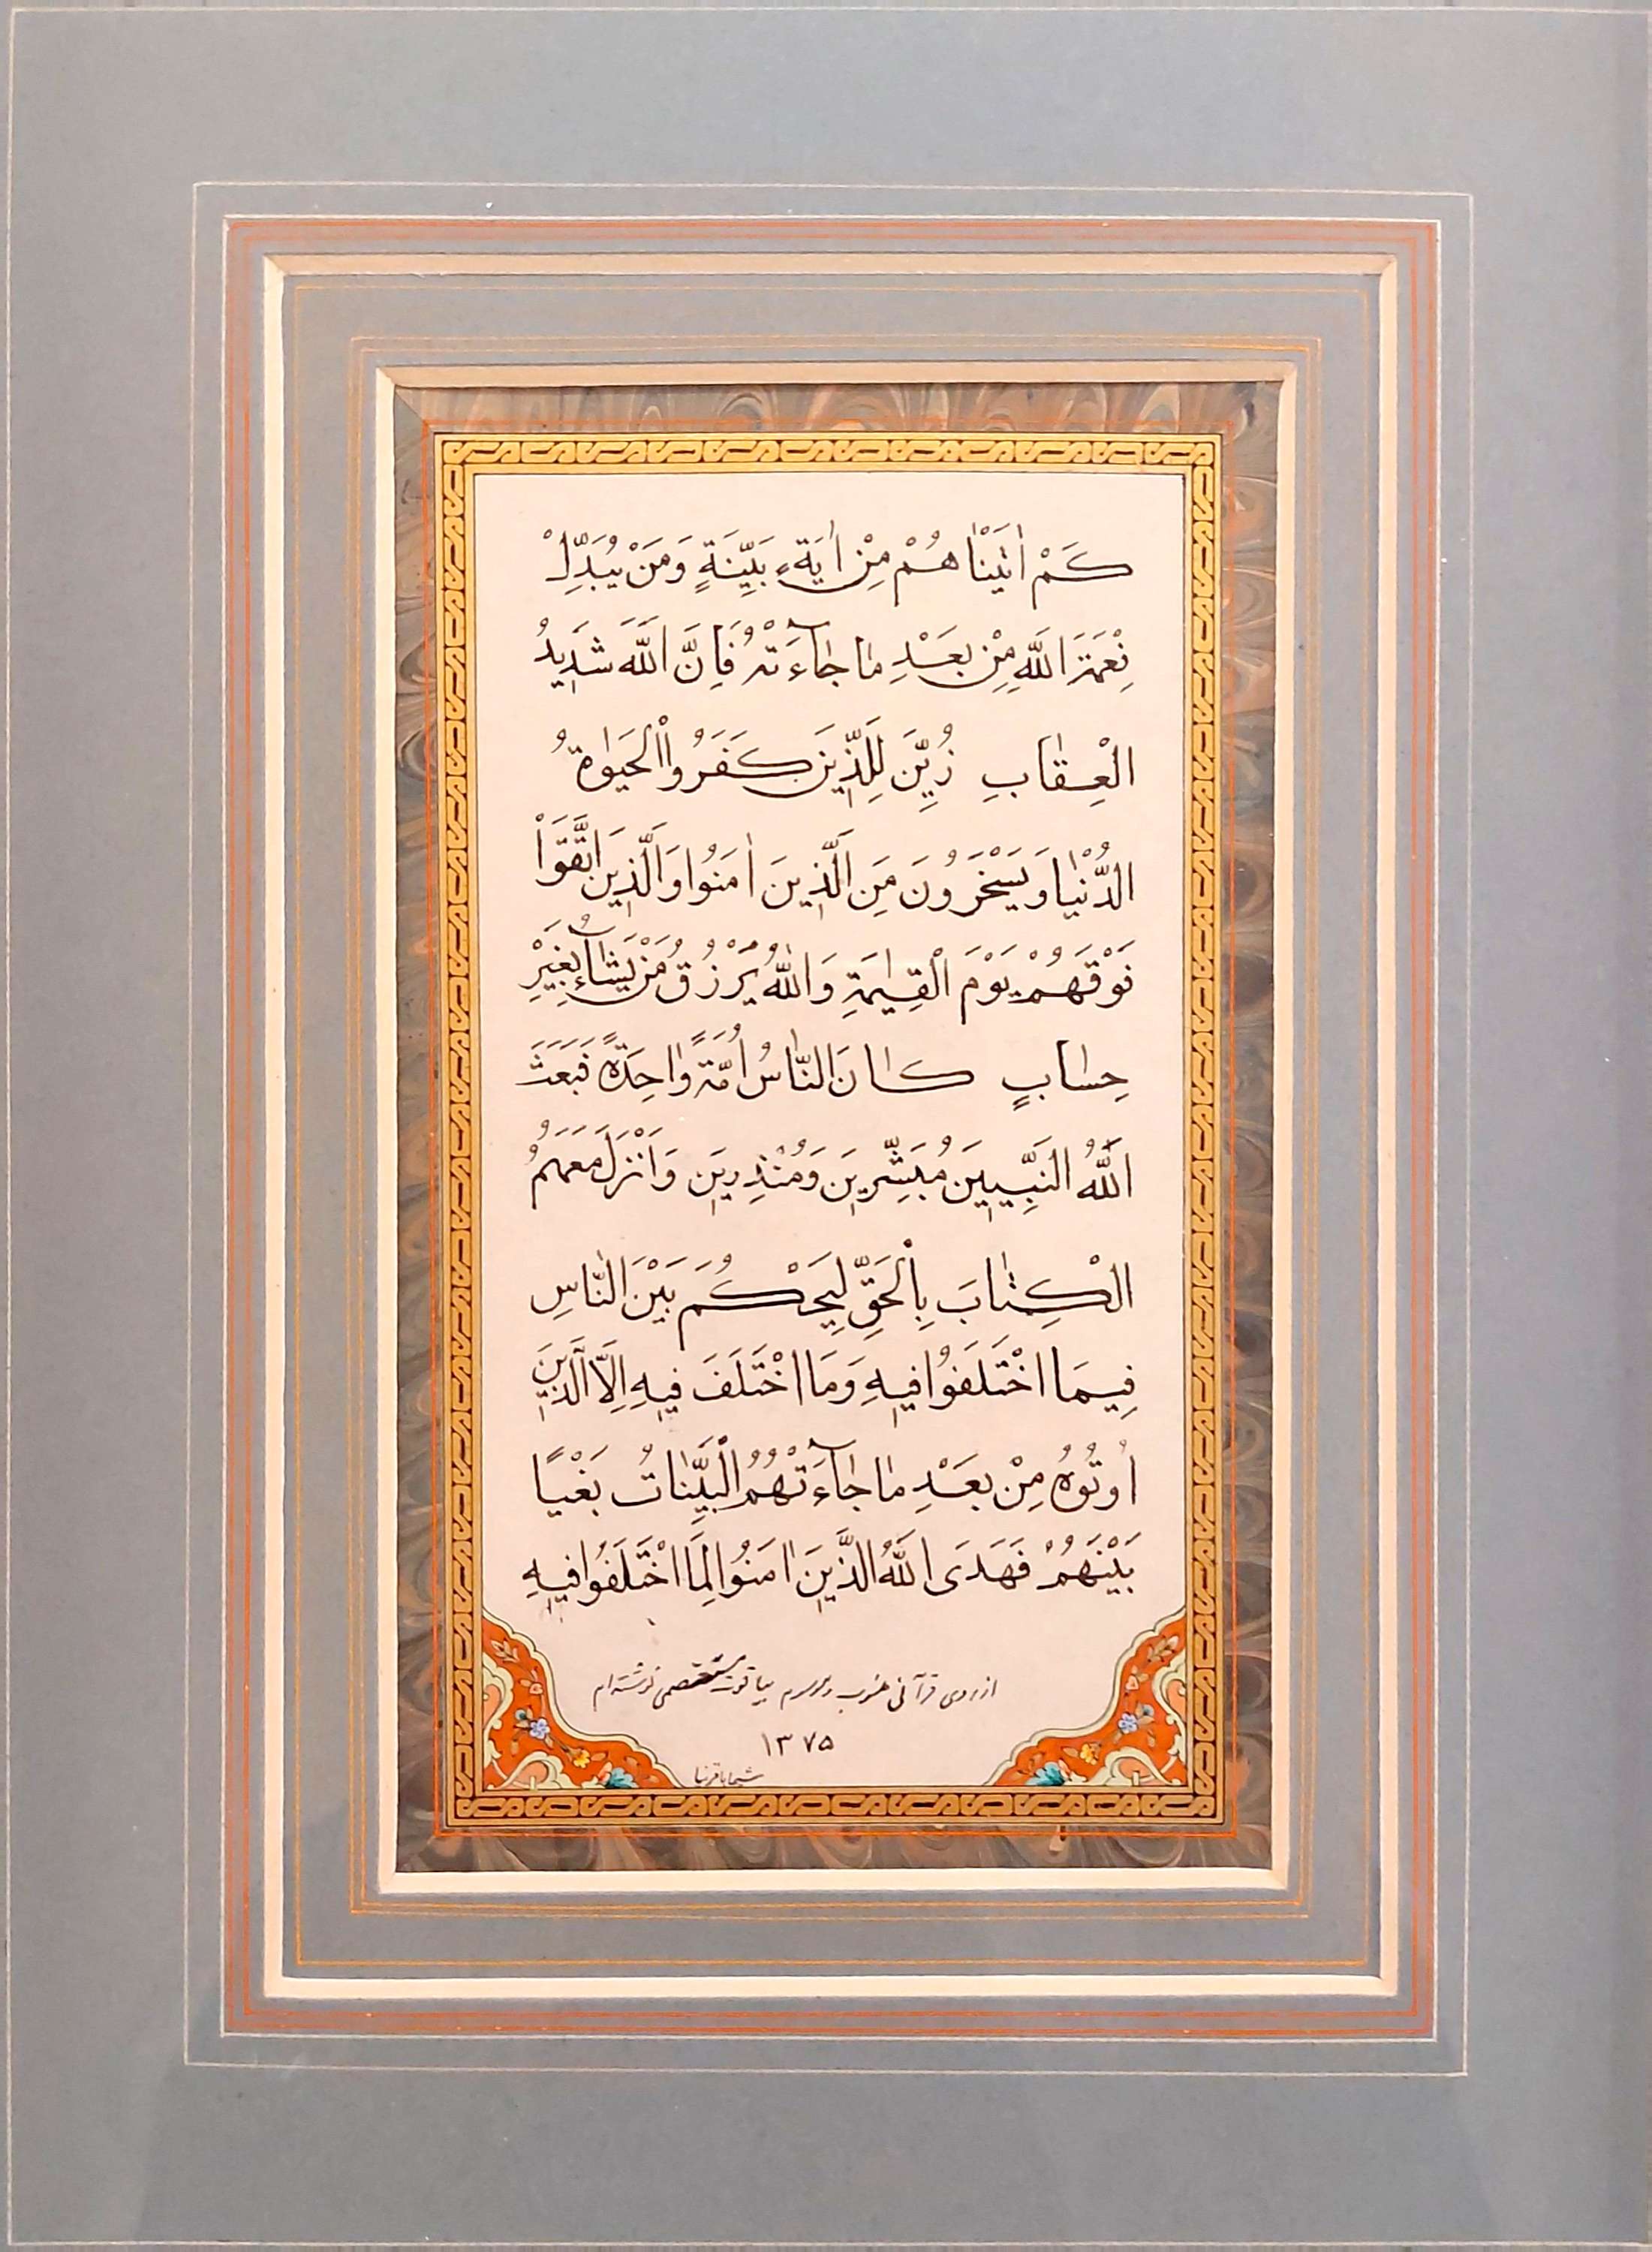 كَمْ اٰتَيْنٰاهُمْ مِنْ اٰيَةٍ بَيِّنَةٍ وَمَنْ يُبَدِّلْ
نِعْمَةَ اللّٰهِ مِنْ بَعْدِ مٰا جٰاۤءَتْهُ فَاِنَّ اللّٰهَ شَدٖيدُ
الْعِقٰابِ زُيِّنَ لِلَّذٖينَ كَفَرُوا الْحَيٰوةُ
الدُّنْيٰا وَيَسْخَرُونَ مِنَ الَّذٖينَ اٰمَنُوا وَالَّذٖينَ اتَّقَوْا
فَوْقَهُمْ يَوْمَ الْقِيٰمَةِ وَاللّٰهُ يَرْزُقُ مَنْ يَشٰاۤءُ بِغَيْرِ
حِسٰابٍ كٰانَ النّٰاسُ اُمَّةً وٰاحِدَةً فَبَعَثَ
اللّٰهُ النَّبِيّٖينَ مُبَشِّرٖينَ وَمُنْذِرٖينَ وَاَنْزَلَ مَعَهُمُ
الْكِتٰابَ بِالْحَقِّ لِيَحْكُمَ بَيْنَ النّٰاسِ
فِيمَا اخْتَلَفُوا فٖيهِ وَمَا اخْتَلَفَ فٖيهِ اِلَّا الَّذٖينَ
اُوتُوهُ مِنْ بَعْدِ مٰا جٰاۤءَتْهُمُ الْبَيِّنٰاتُ بَغْيًا
بَيْنَهُمْ فَهَدَى اللّٰهُ الَّذٖينَ اٰمَنُوا لِمَا اخْتَلَفُوا فٖيهِ
از روی قرآنی منسوب و مرسوم بیاقوت مستعصمی نوشته‌ام
۱۳۷۵